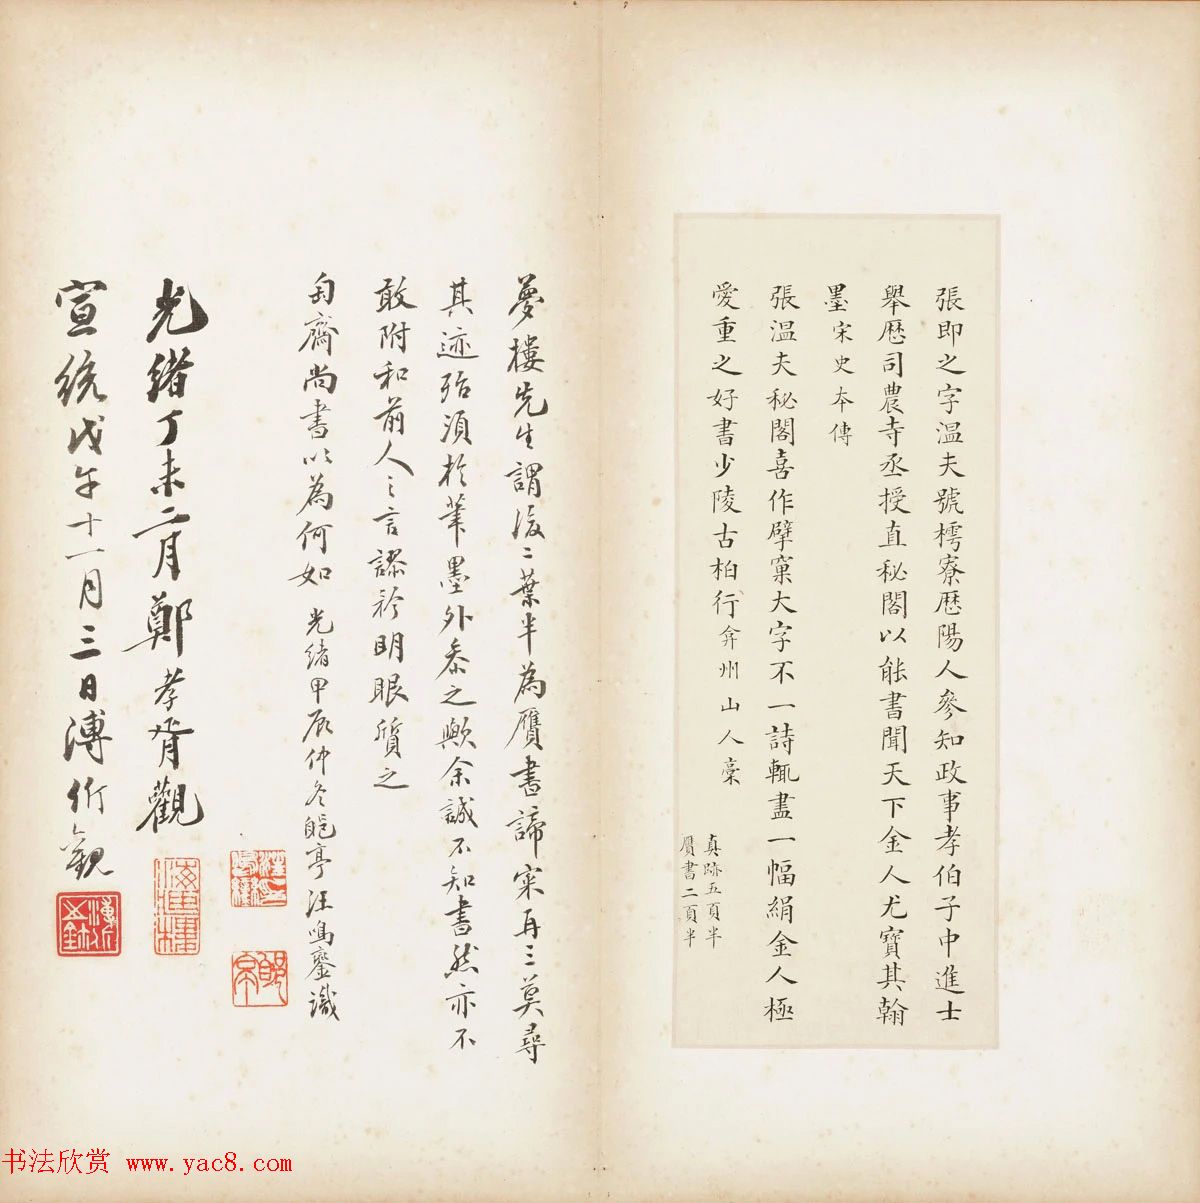 張即之字溫夫號樗寮歷陽人參知政事孝伯子中進士
舉歷司農寺丞授直秘閣以能書聞天下金人尤寶其翰
墨宋史本傳
張溫夫秘閣喜作擘窠大字不一詩輒盡一幅絹金人極
愛重之好書少陵古柏行弇州山人稾
真跡五頁半
贗書二頁半
夢樓先生謂後二葉半為贗書諦審再三莫尋
其迹殆須於筆墨外參之歟余誠不知書然亦不
敢附和前人之言謬矜明眼質之
匋齋尚書以為何如 光緒甲辰仲冬郋亭汪鳴鑾識
光緒丁未二月鄭孝胥觀
海藏樓
宣統戊午十一月三日溥伒觀
书法欣赏 www.yac8.com